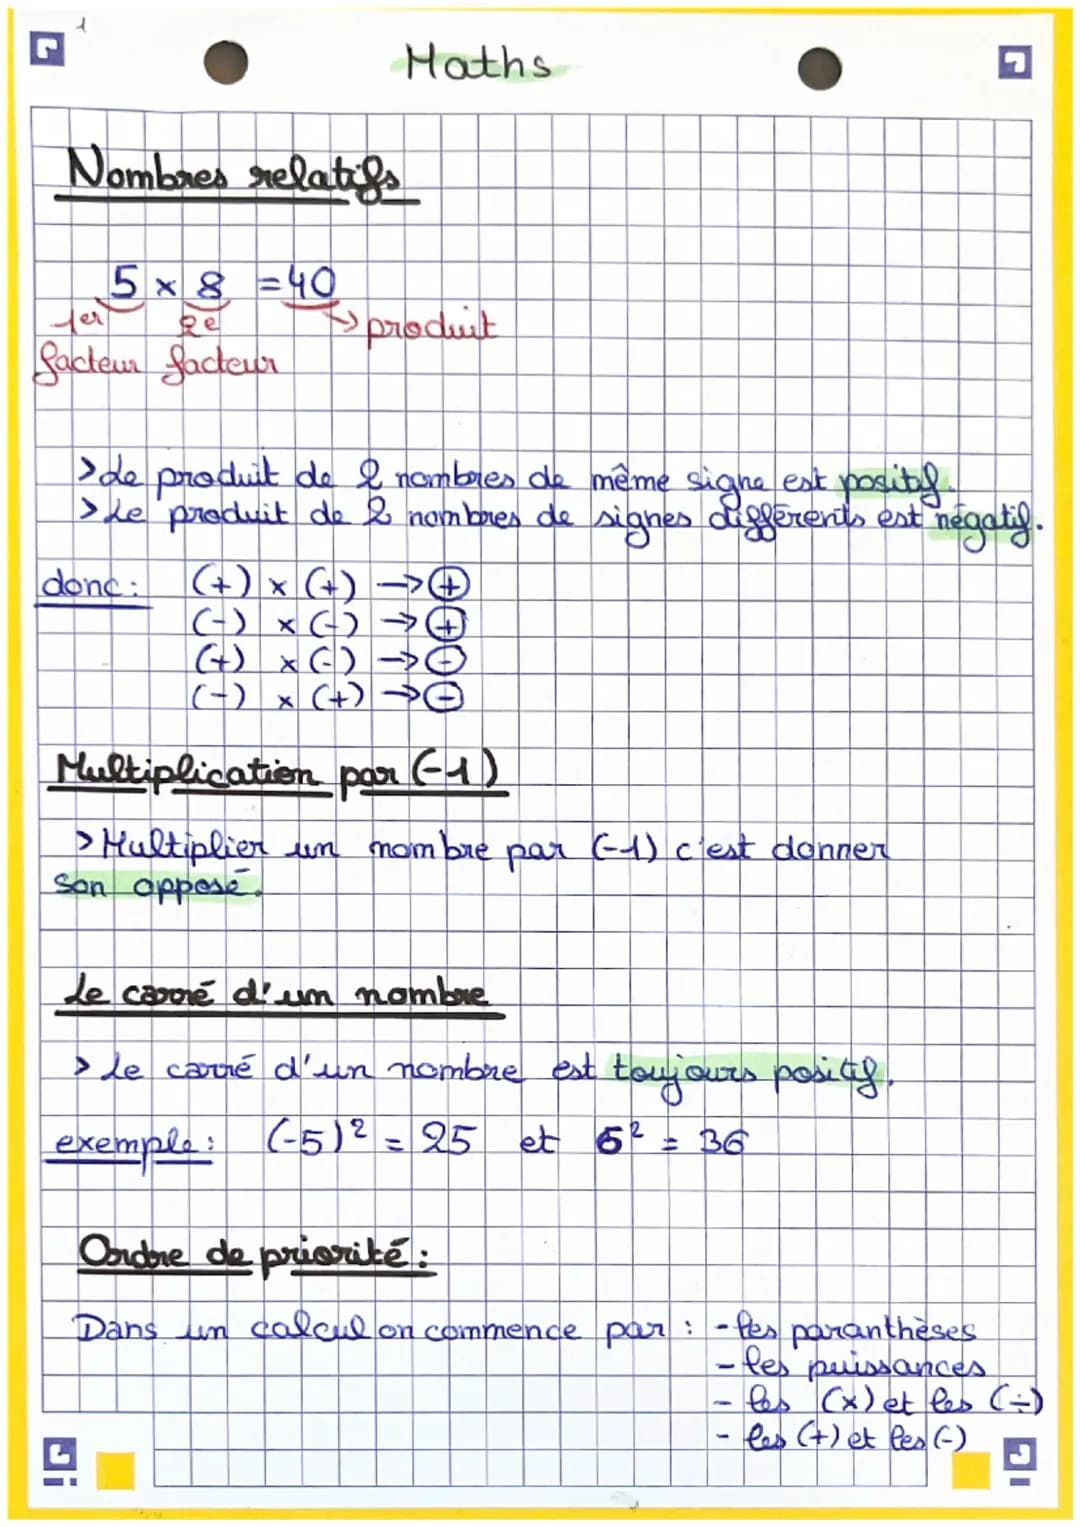 1
Maths
Nombres relatifs
5 × 8 = 40
1er 2e → produit
facteur facteur
> Le produit de 2 nombres de même signe est positif.
> Le produit de 2 nombres de signes différents est négatif.
donc : (+) × (+) → ⊕
(-) × (-) → ⊕
(+) × (-) → ⊖
(-) × (+) → ⊖
Multiplication par (-1)
> Multiplier un nombre par (-1) c'est donner
son opposé.
Le carré d'un nombre
> Le carré d'un nombre est toujours positif.
exemple : (-5)² = 25 et 6² = 36
Ordre de priorité :
Dans un calcul on commence par : - les paranthèses
- les puissances
- les (×) et les (÷)
- les (+) et les (-)